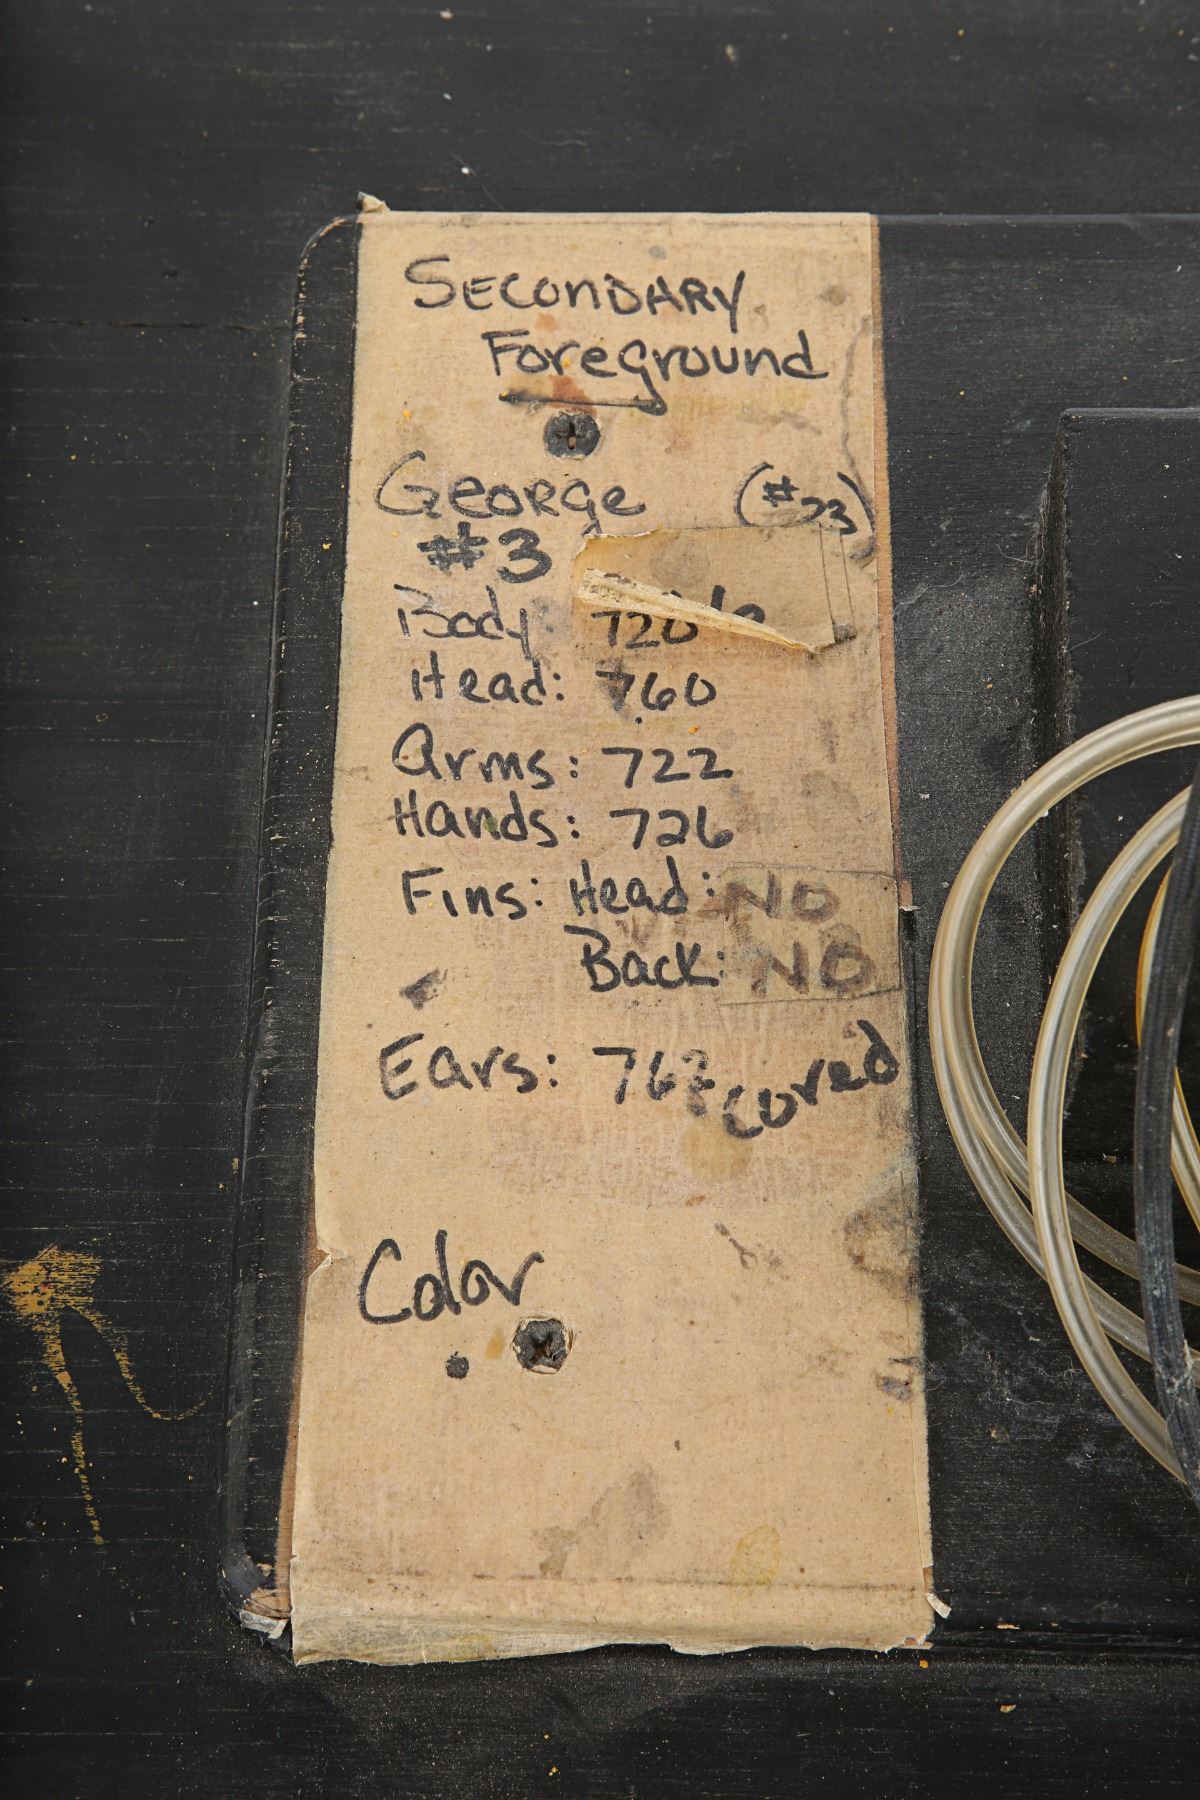 SECONDARY
Foreground
George (#23)
#3
Body: 720
Head: 760
Arms: 722
Hands: 726
Fins: Head: NO
Back: NO
Ears: cored
Color